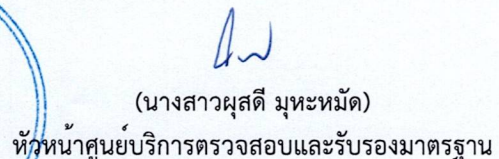 (นางสาวผุสดี มุหะหมัด)
หัวหน้าศูนย์บริการตรวจสอบและรับรองมาตรฐาน